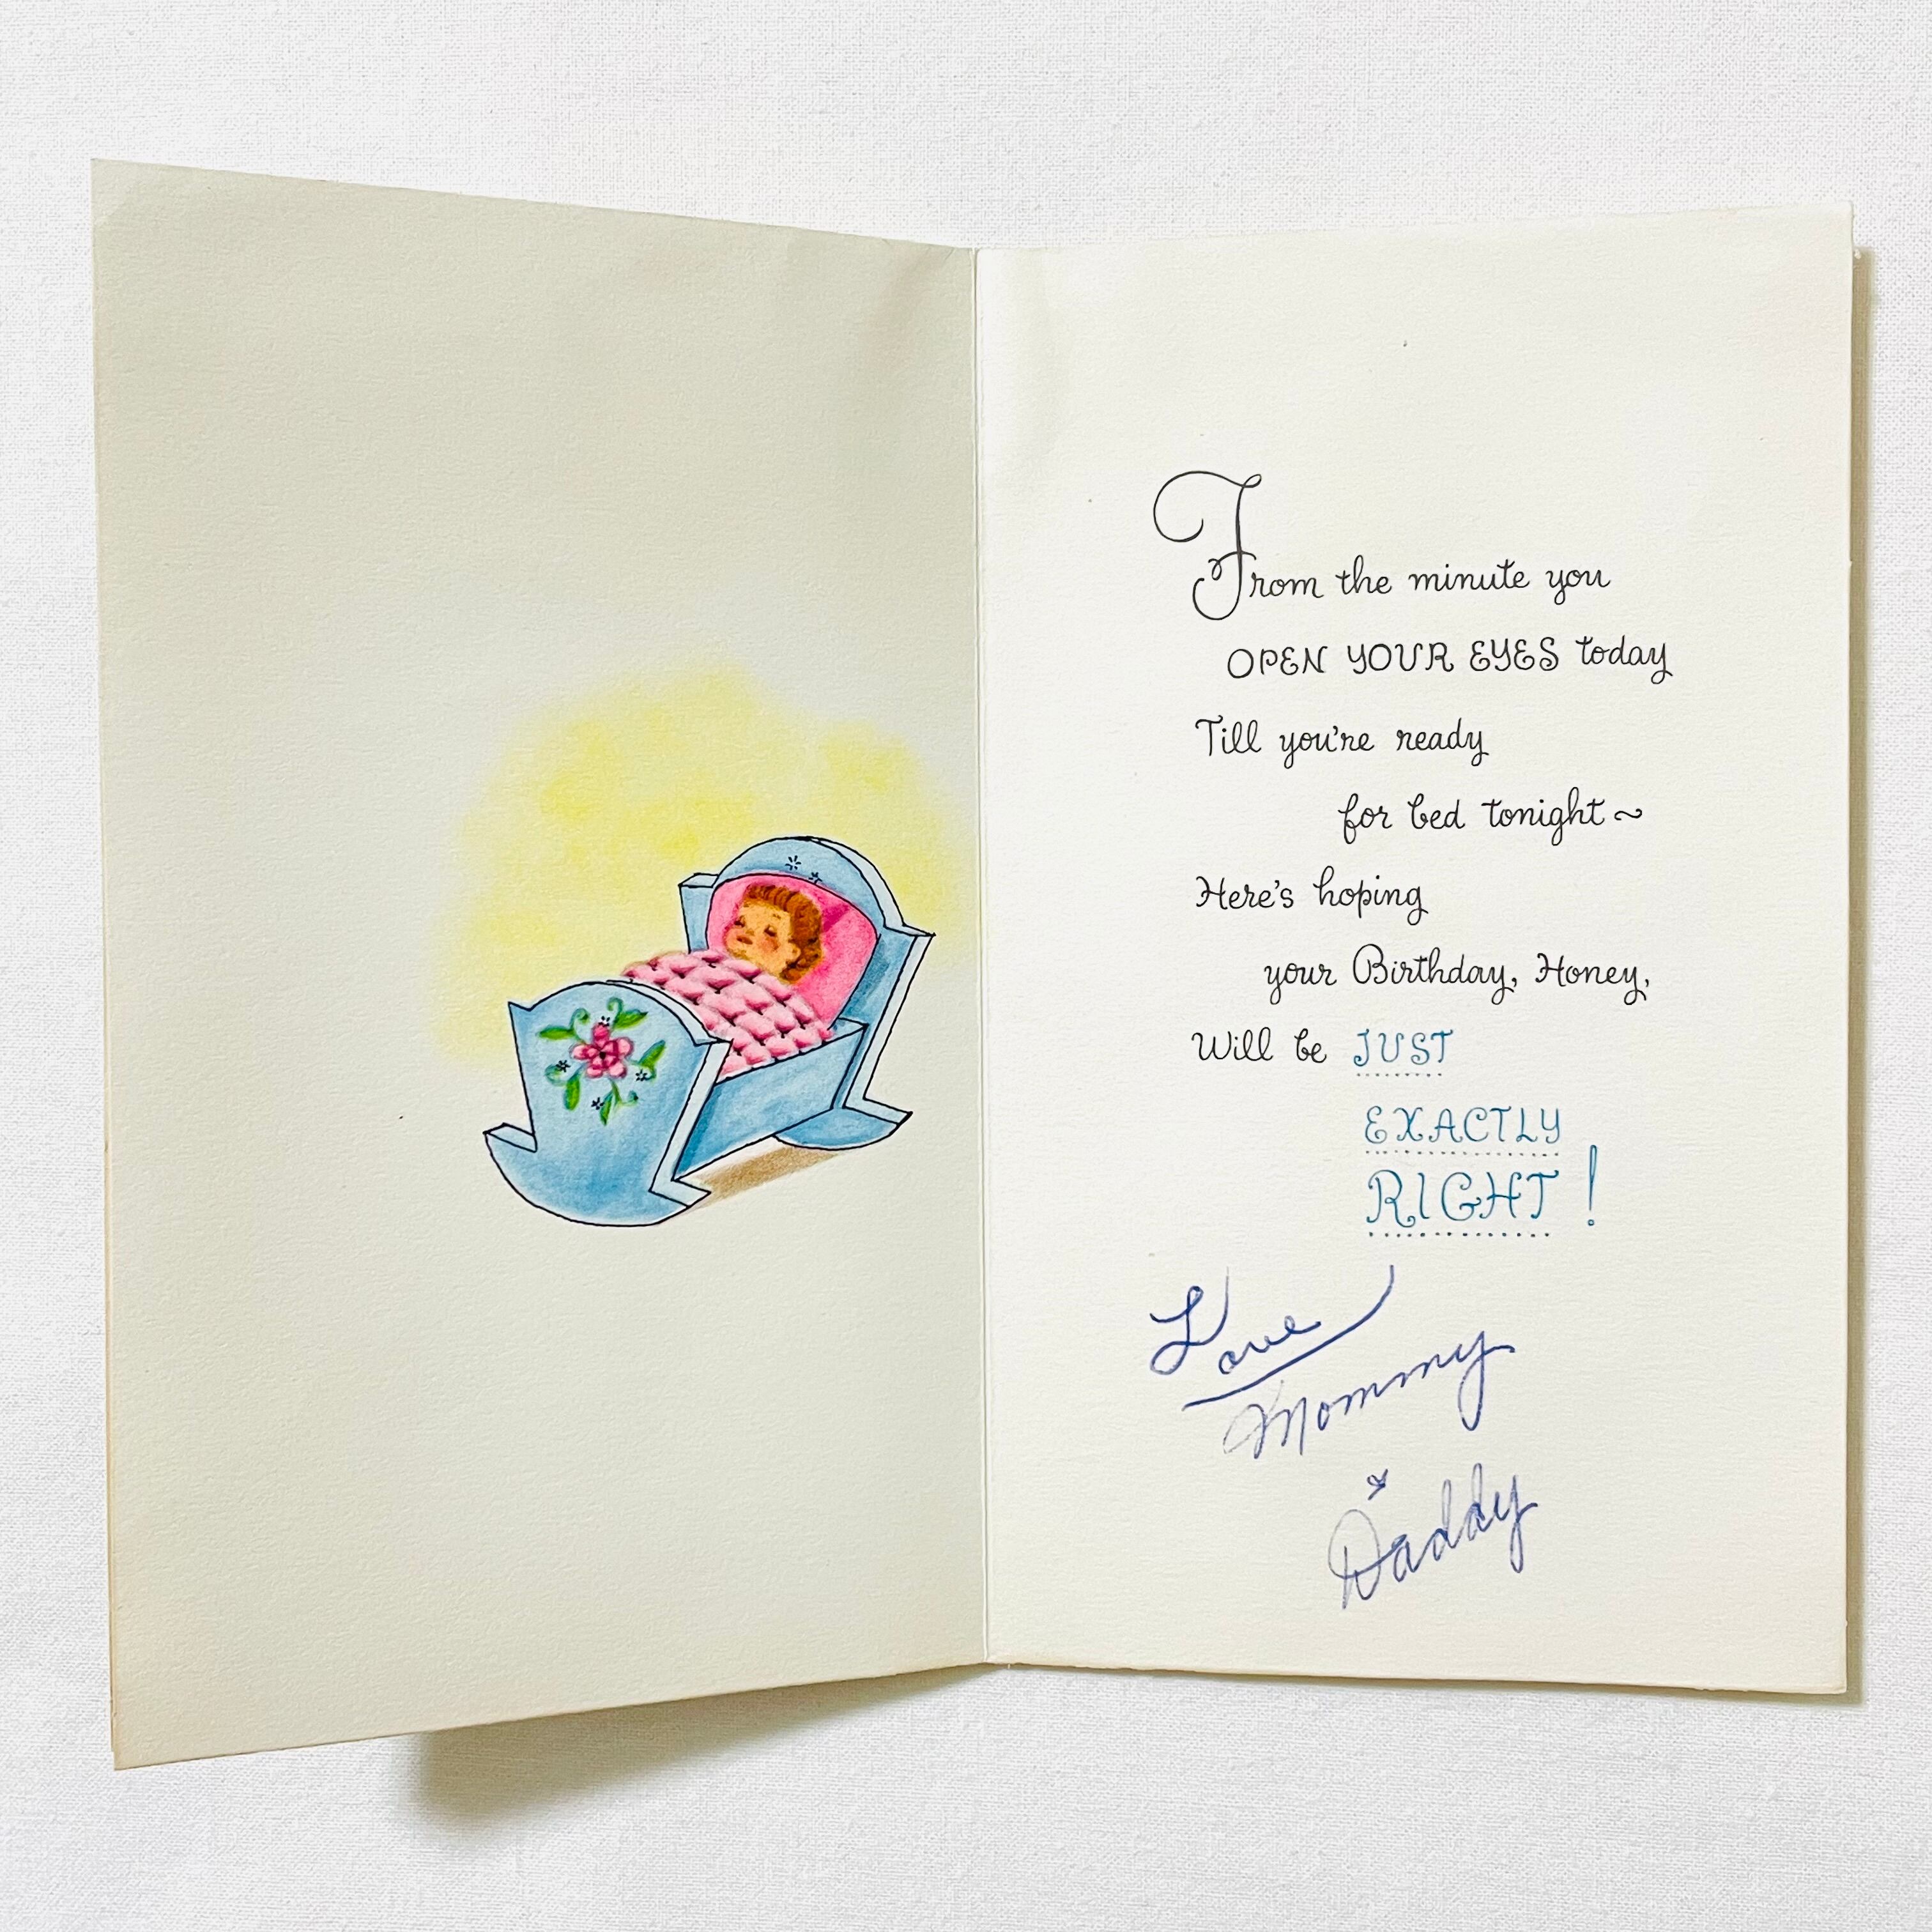 From the minute you
OPEN YOUR EYES today
Till you're ready
for bed tonight~
Here's hoping
your Birthday, Honey,
Will be JUST
EXACTLY
RIGHT!
Love
Mommy
&
Daddy